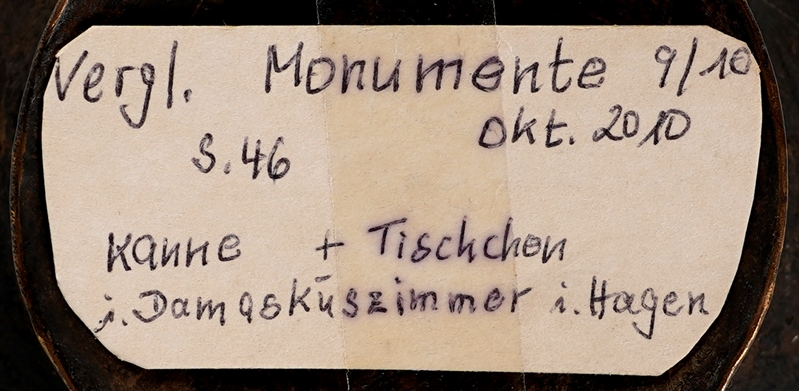 Vergl. Monumente 9/10
S.46 Okt. 2010
Kanne + Tischchen
i. Damaskuszimmer i. Hagen